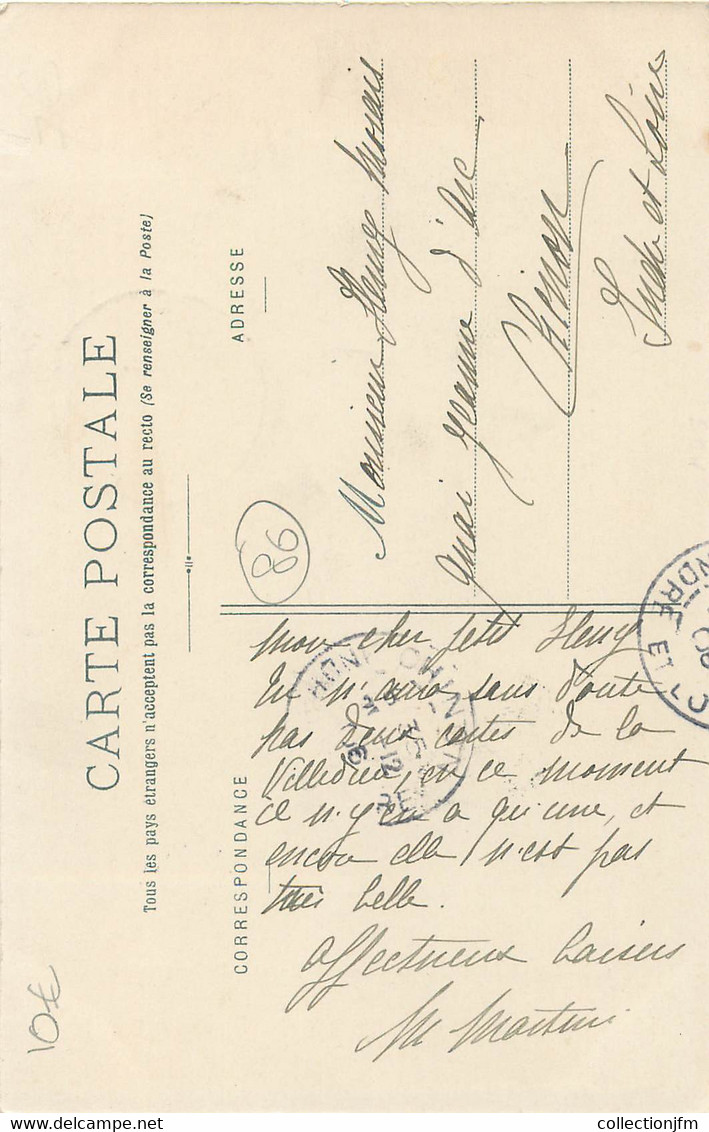 CARTE POSTALE
Tous les pays étrangers n'acceptent pas la correspondance au recto (Se renseigner à la Poste)
CORRESPONDANCE
ADRESSE
mon cher petit Henry
tu n'auras sans doute
pas deux cartes de la
Villedieu, en ce moment
il n'y en a qu'une, et
encore elle n'est pas
très belle.
Affectueux baisers
M Martin
86
Monsieur Henry
quai Jeanne d'Arc
Chinon
Indre et Loire
CHINON
INDRE ET
10€
delcampe.net
collectionjfm